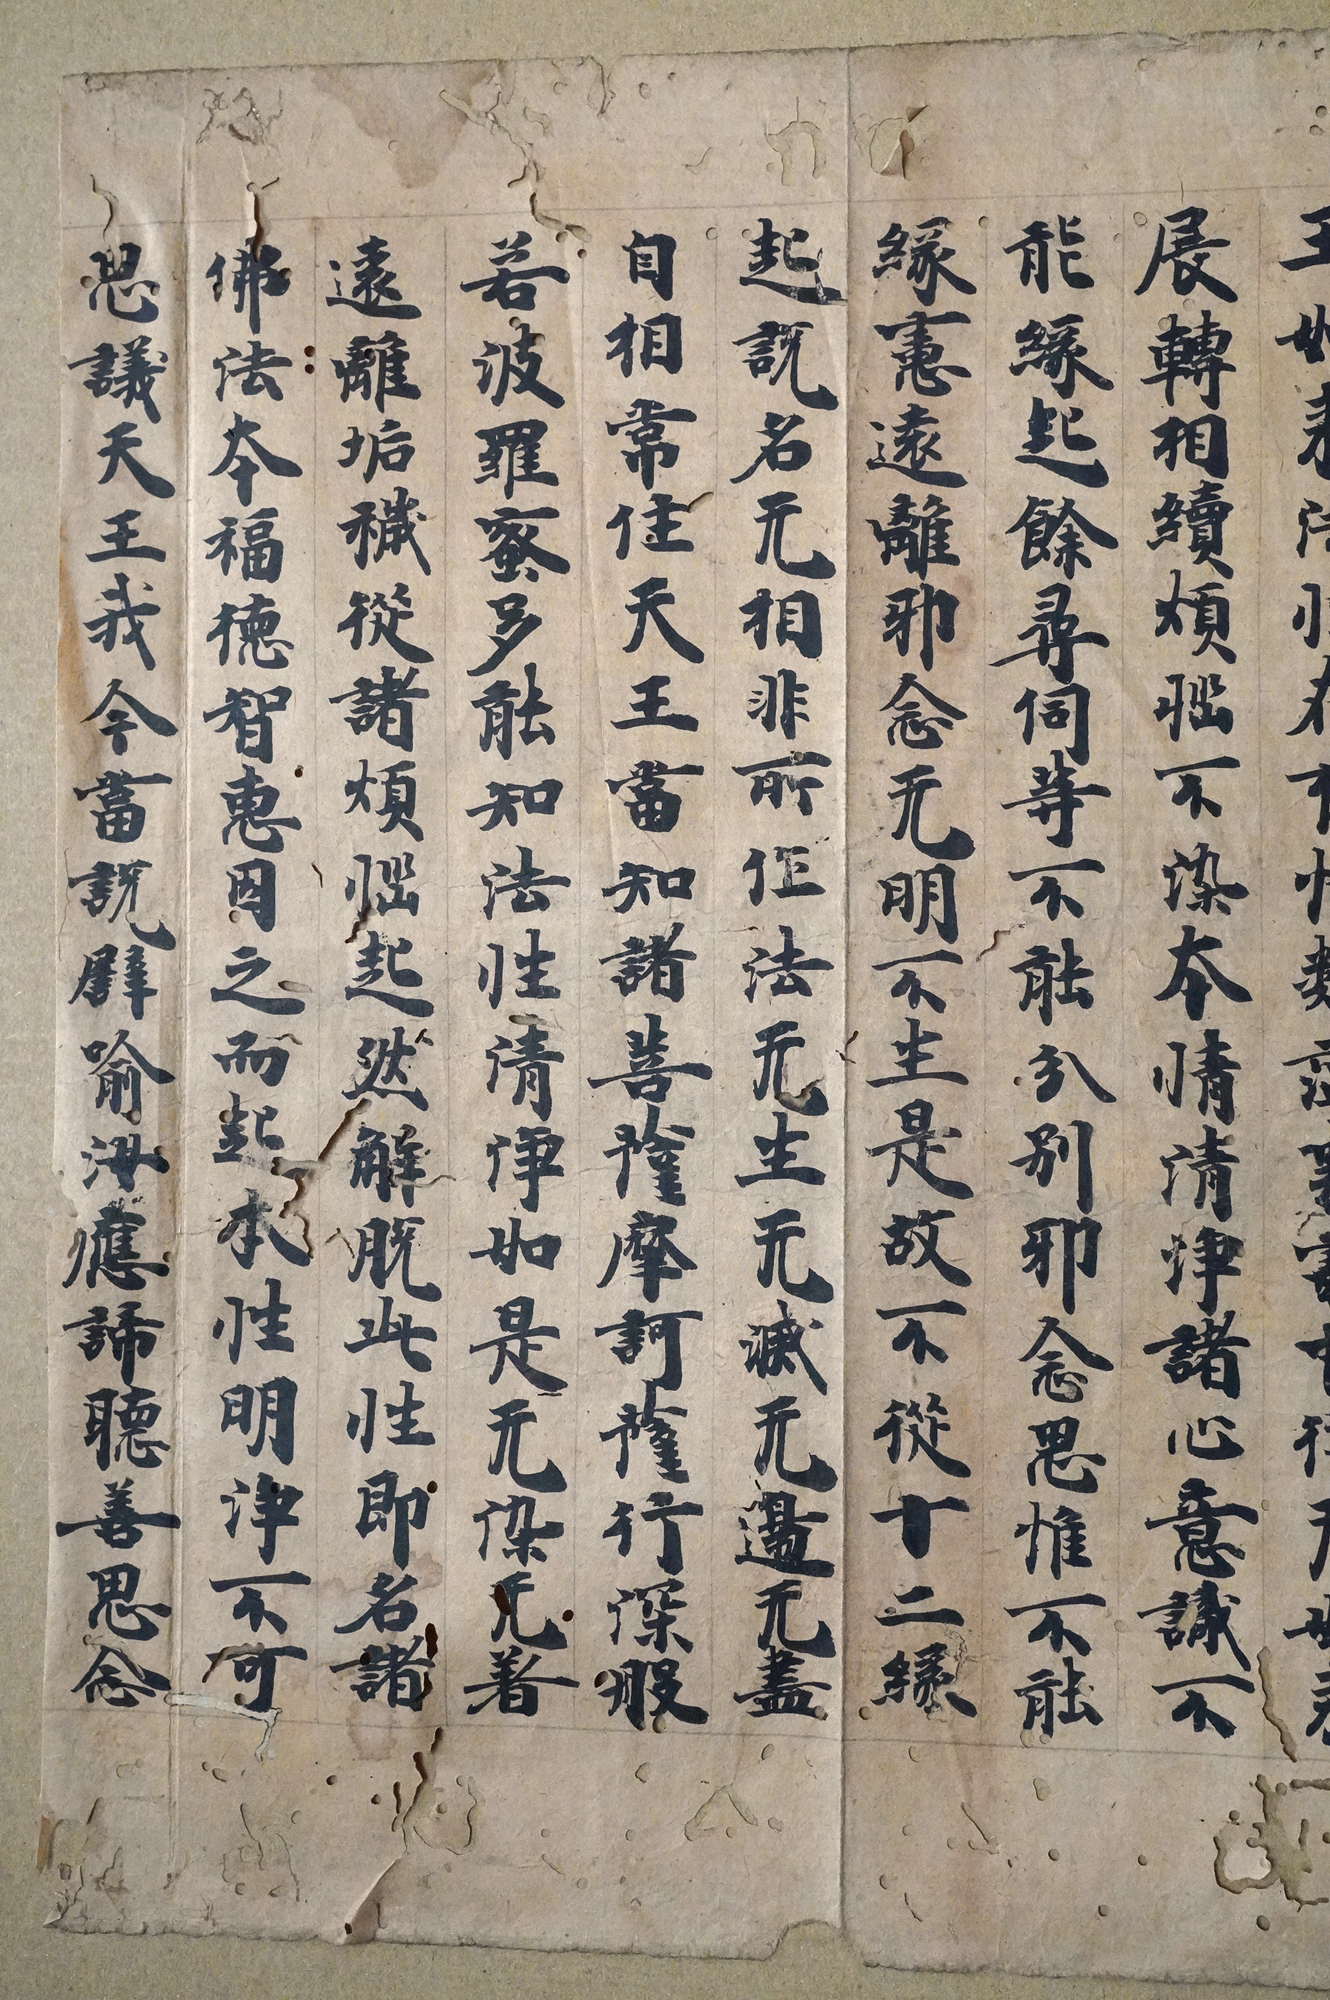 展轉相續煩惱不染本情清淨諸心意識不
能緣起餘尋伺等不能分別邪念思惟不能
緣憲遠離邪念无明不生是故不從十二緣
起說名无相非所作法无生无滅无邊无盡
自相常住天王當知諸菩薩摩訶薩行深般
若波羅蜜多能知法性清淨如是无染无著
遠離垢穢從諸煩惱起然解脫此性即名諸
佛法本福德智惠因之而起本性明淨不可
思議天王我今當說譬喻汝應諦聽善思念